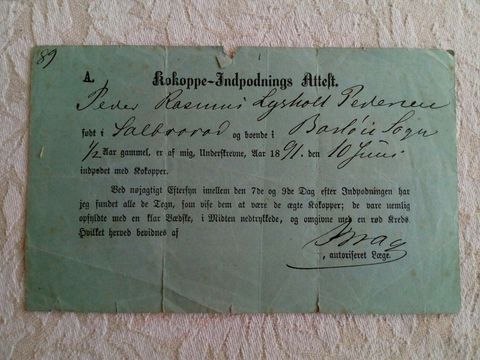 89
A. Kokoppe-Indpodnings Attest.
Peder Rasmus Lysholt Pedersen
født i Salbrovad og boende i Barløse Sogn
1/2 Aar gammel, er af mig, Underskrevne, Aar 1891. den 10 Juni
indpodet med Kokopper.
Ved nøjagtig Eftersyn imellem den 7de og 9de Dag efter Indpodningen har
jeg fundet alle de Tegn, som vise dem at være de ægte Kokopper; de vare nemlig
opfyldte med en klar Vædske, i Midten nedtrykkede, og omgivne med en rød Kreds
Hvilket herved bevidnes af
, autoriseret Læge.